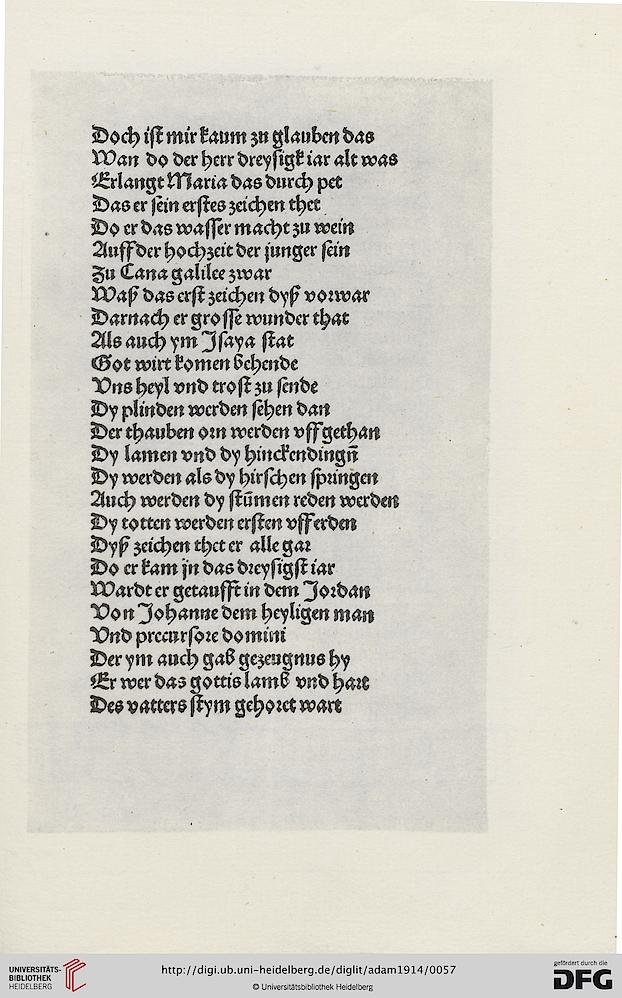 Doch ist mir kaum zu glauben das
Wan do der herr dreysigk iar alt was
Erlangt Maria das durch pet
Das er sein erstes zeichen thet
Do er das wasser macht zu wein
Auff der hochzeit der junger sein
Zu Cana galilee zwar
Waß das erst zeichen dyß vorwar
Darnach er grosse wunder that
Als auch ym Isaya stat
Got wirt komen behende
Vns heyl vnd trost zu sende
Dy plinden werden sehen dan
Der thauben orn werden vff gethan
Dy lamen vnd dy hinckendingñ
Dy werden als dy hirschen springen
Auch werden dy stūmen reden werden
Dy totten werden ersten vff erden
Dyß zeichen thet er alle gar
Do er kam jn das dreysigst iar
Wardt er getaufft in dem Jordan
Von Johanne dem heyligen man
Vnd precursore domini
Der ym auch gab gezeugnus hy
Er wer das gottis lamb vnd hart
Des vatters stym gehoret wart
UNIVERSITÄTS-
BIBLIOTHEK
HEIDELBERG
http://digi.ub.uni-heidelberg.de/diglit/adam1914/0057
© Universitätsbibliothek Heidelberg
gefördert durch die
DFG